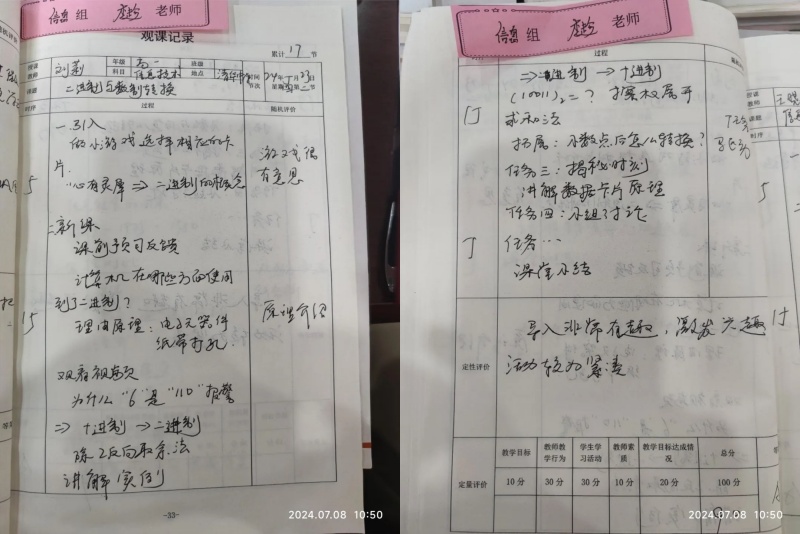 信息 组 老师
观课记录
累计 17 节
授课教师 年级 高一 班级
科目 信息技术 地点 时间 节次
课题 二进制与数制转换
时序 过程 随机评价
一.引入
的小游戏选择相应的卡
片.
游戏很
有意思
5 "心有灵犀 ⇒ 二进制的概念
二.新课
课前预习反馈
计算机在哪些方面使用
到了二进制?
15 理由原理: 电子元器件
纸带打孔
原理介绍
观看视频
为什么"6"是"110"报警
⇒ 十进制 → 二进制
除2反向取余法
讲解实例
-33-
2024.07.08 10:50
信息 组 老师
过程
⇒ 二进制 → 十进制
(10011)₂=? 按权展开
求和法
拓展: 小数点后怎么转换?
任务三: 揭秘时刻
讲解数据卡片原理
任务四: 小组讨论
任务…
课堂小结
导入非常有趣, 激发兴趣
定性评价 活动较为紧凑
教学目标 教师教学行为 学生学习活动 教师素质 教学目标达成情况 总分
定量评价 10分 30分 30分 10分 20分 100分
2024.07.08 10:50